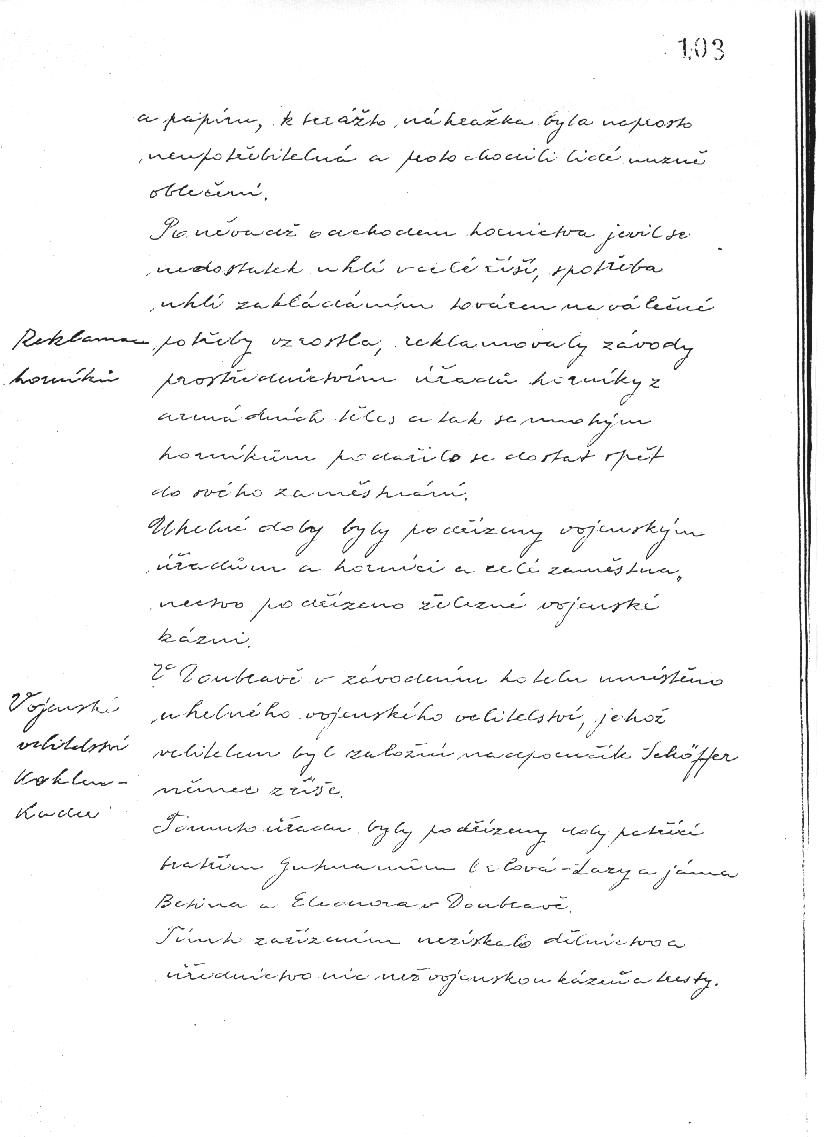 103
a papíru, kterážto náhražka byla naprosto
neupotřebitelná a proto chodili lidé nuzně
oblečeni.
Poněvadž odchodem hornictva jevil se
nedostatek uhlí v celé říši, spotřeba
uhlí zakládáním továren na válečné
Reklamace
horníků
potřeby vzrostla, reklamovaly závody
prostřednictvím úřadů horníky z
armádních těles a tak se mnohým
horníkům podařilo se dostat opět
do svého zaměstnání.
Uhelné doby byly podřízeny vojenským
úřadům a horníci a celé zaměstna„
nectvo podřízeno železné vojenské
kázni.
Vojenské
velitelství
V Doubravě v závodením hotelu umístěno
uhelného vojenského velitelství, jehož
velitelem byl záložní nadporučík Schöffer
němec z říše.
Tomuto úřadu byly podřízeny doly patřící
hrabům Gutmannům Orlová-Lazy a jáma
Betina a Eleonora v Doubravě.
Tímto zařízením nezískalo dělnictvo a
úřednictvo nic než vojenskou kázeň a tresty.